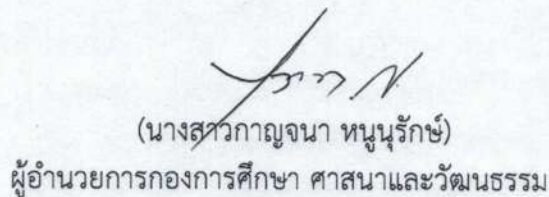 (นางสาวกาญจนา หนูนุรักษ์)
ผู้อำนวยการกองการศึกษา ศาสนาและวัฒนธรรม